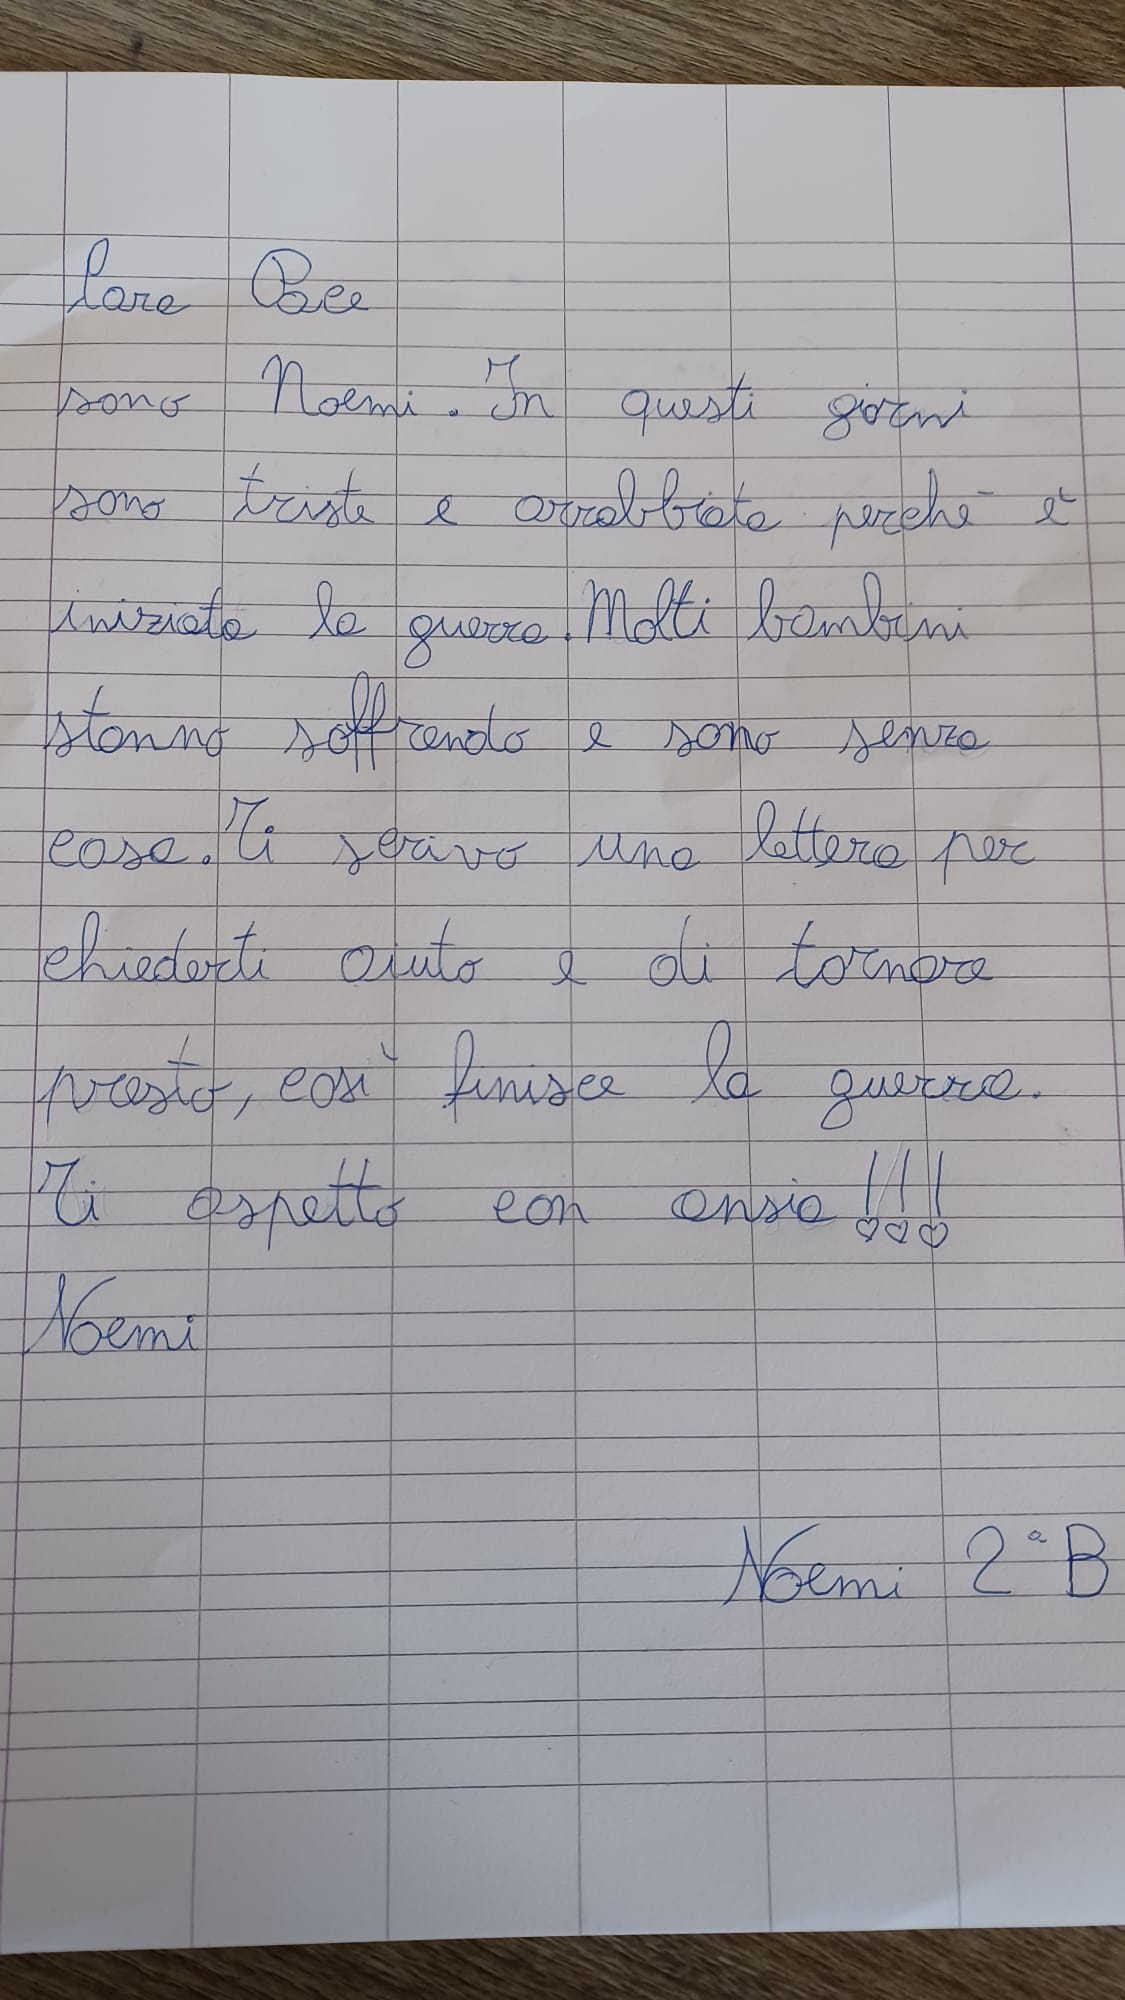 Cara Pace
sono Noemi. In questi giorni
sono triste e arrabbiata perchè è
iniziata la guerra. Molti bambini
stanno soffrendo e sono senza
casa. Ti scrivo una lettera per
chiederti aiuto e di tornare
presto, così finisce la guerra.
Ti aspetto con ansia!!!
Noemi
Noemi 2ª B